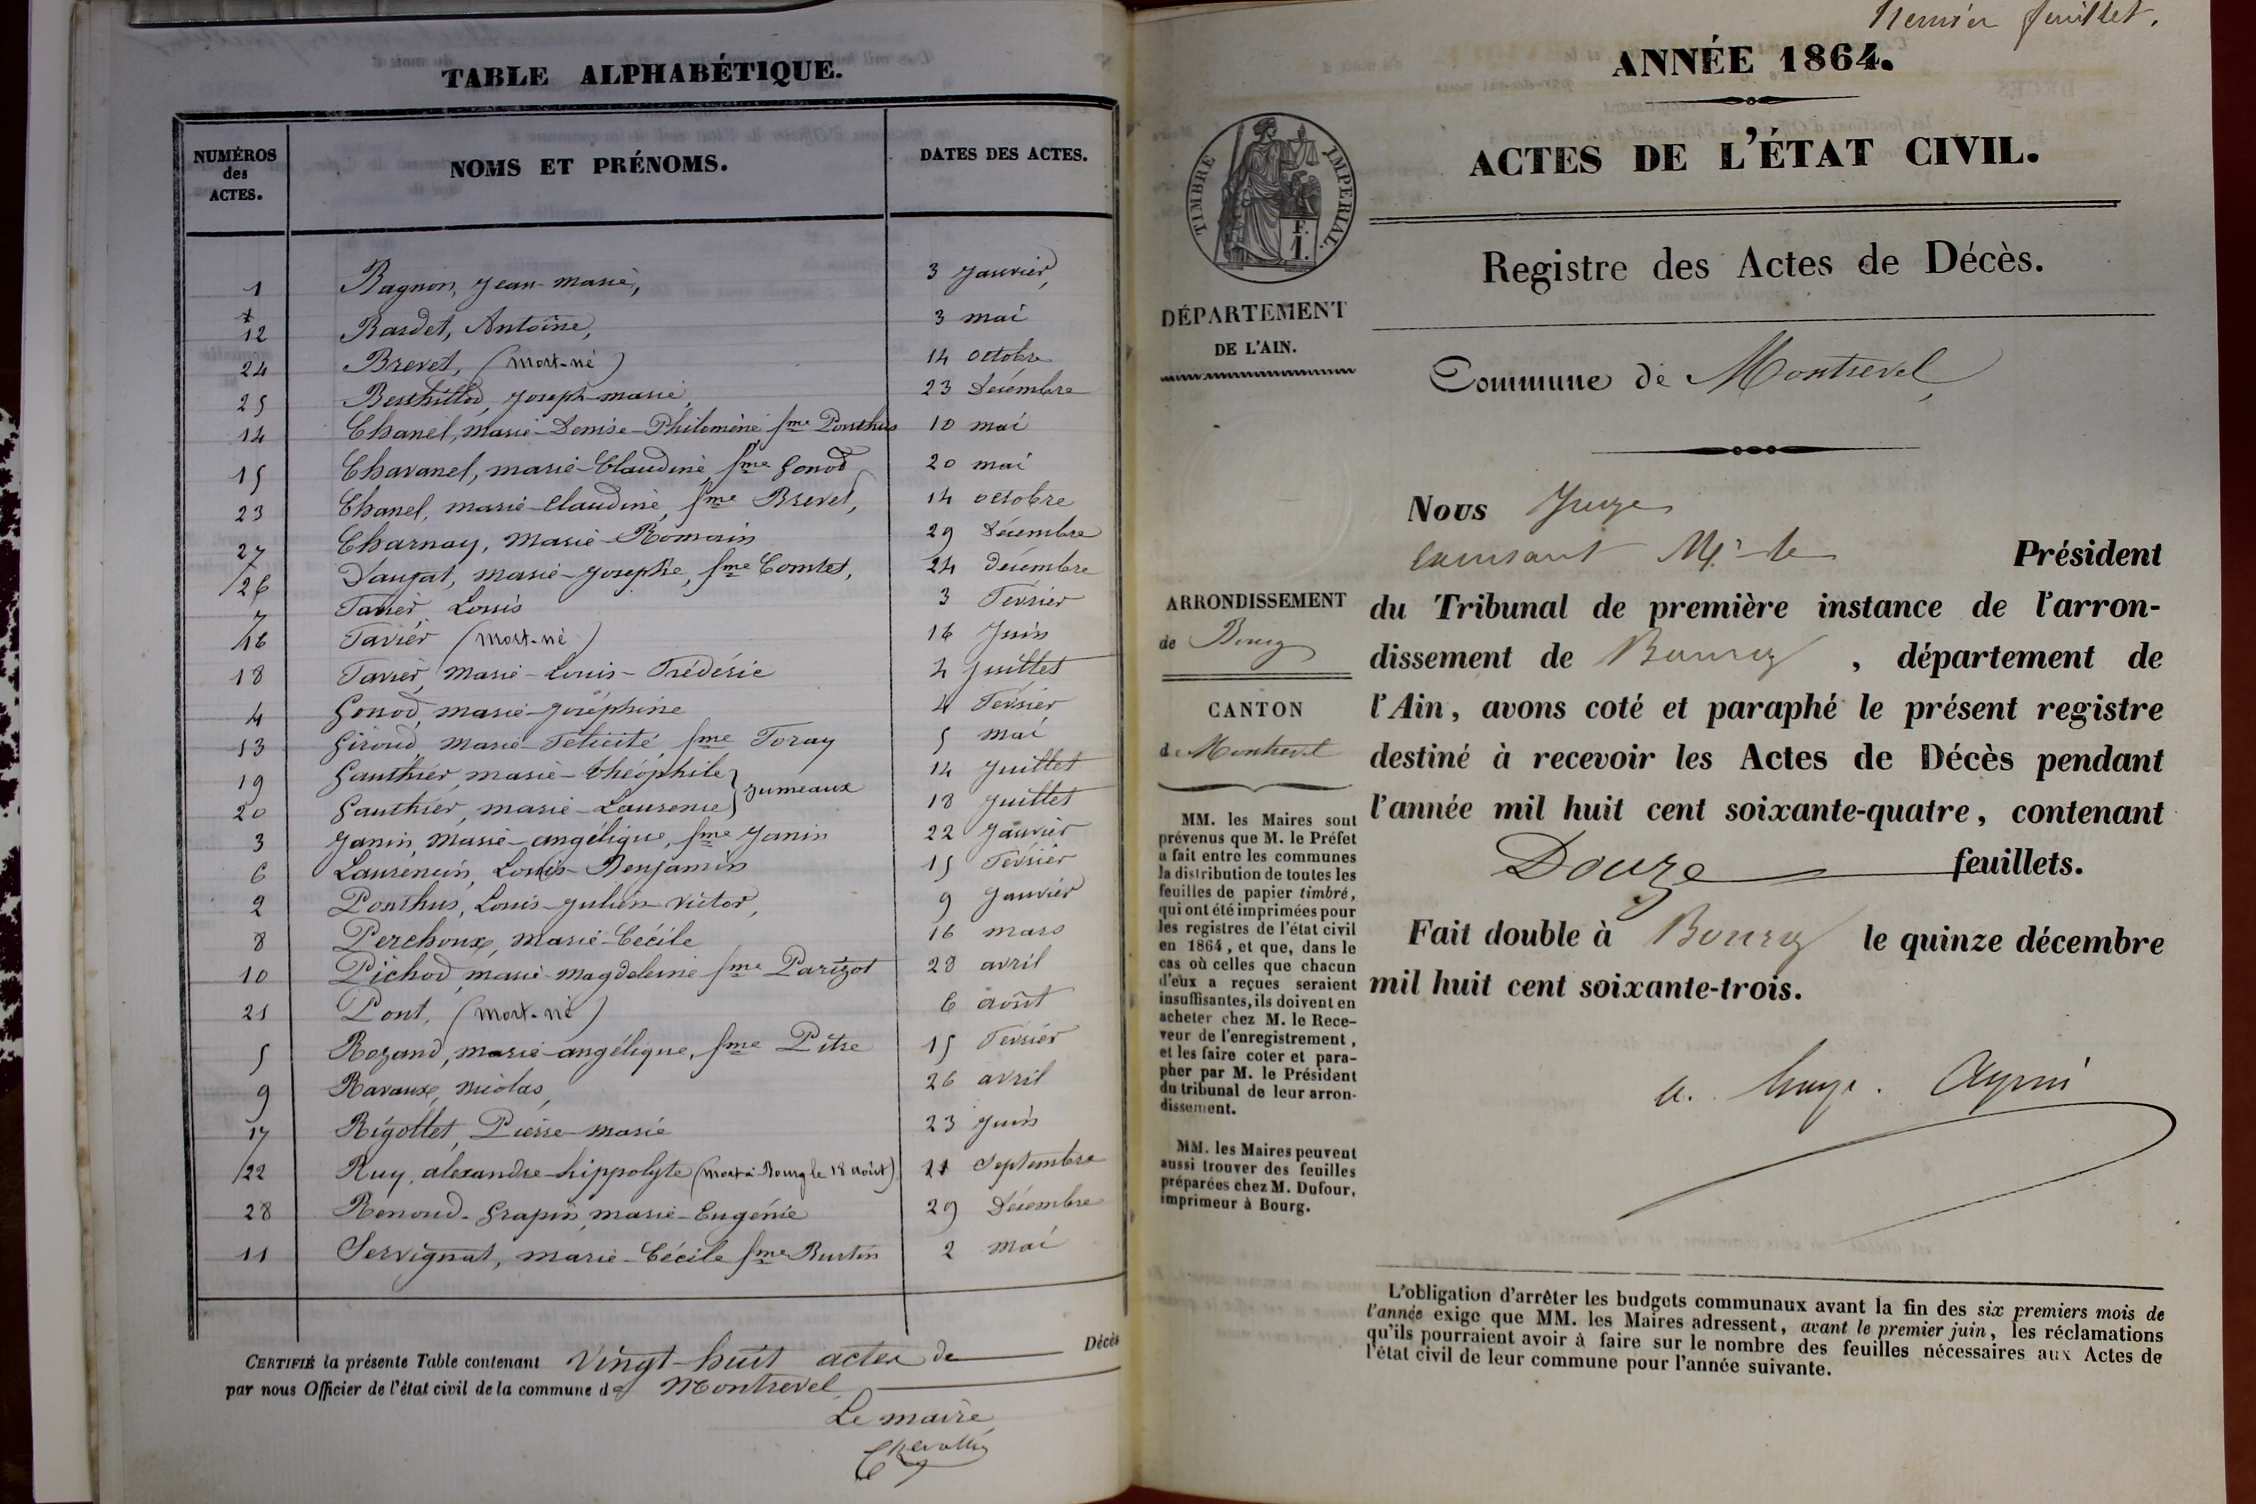 TABLE ALPHABÉTIQUE.
NUMÉROS des ACTES. NOMS ET PRÉNOMS. DATES DES ACTES.
1 Bagnon, Jean-Marie, 3 Janvier,
12 Bardet, Antoine, 3 mai
24 Brevet, (mort-né) 14 octobre
25 Berthillod, Joseph-Marie, 23 Décembre
14 Chanel, Marie-Denise-Philomène fme Ponthus 10 mai
15 Chavanel, marie-Claudine fme Gonod 20 mai
23 Chanel, marie-Claudine, fme Brevet, 14 octobre
27 Charnay, Marie-Romain 29 Décembre
26 Daujat, marie-Josephe, fme Comtet, 24 décembre
7 Favier, Louis 3 Février
16 Favier (mort-né) 16 Juin
18 Favier, Marie-Louis-Frédéric 4 Juillet
4 Gonod, marie-Joséphine 4 Février
13 Giroud, Marie-Félicité, fme Foray 5 mai
19 Gauthier, marie-théophile } jumeaux 14 Juillet
20 Gauthier, marie-Laurence } 18 Juillet
3 Janin, Marie-angélique, fme Janin 22 Janvier
6 Laurencin, Louis-Benjamin 15 Février
2 Ponthus, Louis-Julien-Victor, 9 Janvier
8 Perchoux, Marie-Cécile 16 mars
10 Pichod, marie-Magdeleine fme Parizot 28 avril
21 Pont, (mort-né) 6 août
5 Rozand, marie-angélique, fme Pitre 15 Février
9 Ravaux, Nicolas, 26 avril
17 Rigollet, Pierre-Marie 23 Juin
22 Ruy, alexandre-hippolyte (mort à Bourg le 18 août) 21 Septembre
28 Renoud-Grapin, marie-Eugénie 29 Décembre
11 Servignat, marie-Cécile fme Burtin 2 mai
CERTIFIÉ la présente Table contenant vingt-huit actes de Décès
par nous Officier de l'état civil de la commune de Montrevel
Le maire
Premier feuillet.
ANNÉE 1864.
TIMBRE IMPÉRIAL.
F.
1.
ACTES DE L'ÉTAT CIVIL.
Registre des Actes de Décès.
DÉPARTEMENT
DE L'AIN.
Commune de Montrevel,
ARRONDISSEMENT
de Bourg
CANTON
de Montrevel
MM. les Maires sont
prévenus que M. le Préfet
a fait entre les communes
la distribution de toutes les
feuilles de papier timbré,
qui ont été imprimées pour
les registres de l'état civil
en 1864, et que, dans le
cas où celles que chacun
d'eux a reçues seraient
insuffisantes, ils doivent en
acheter chez M. le Rece-
veur de l'enregistrement,
et les faire coter et para-
pher par M. le Président
du tribunal de leur arron-
dissement.
MM. les Maires peuvent
aussi trouver des feuilles
préparées chez M. Dufour,
imprimeur à Bourg.
Nous Juge
Président
du Tribunal de première instance de l'arron-
dissement de Bourg, département de
l'Ain, avons coté et paraphé le présent registre
destiné à recevoir les Actes de Décès pendant
l'année mil huit cent soixante-quatre, contenant
Douze feuillets.
Fait double à Bourg le quinze décembre
mil huit cent soixante-trois.
L'obligation d'arrêter les budgets communaux avant la fin des six premiers mois de
l'année exige que MM. les Maires adressent, avant le premier juin, les réclamations
qu'ils pourraient avoir à faire sur le nombre des feuilles nécessaires aux Actes de
l'état civil de leur commune pour l'année suivante.